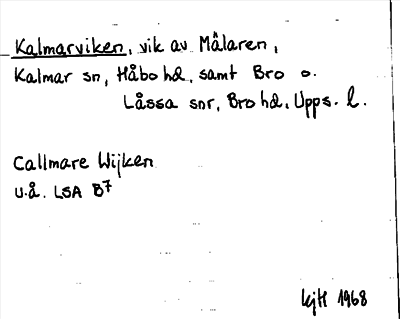 Kalmarviken, vik av Mälaren,
Kalmar sn, Håbo hd, samt Bro o.
Låssa snr, Bro hd, Upps. l.
Callmare Wijken
u.å. LSA B7
1968